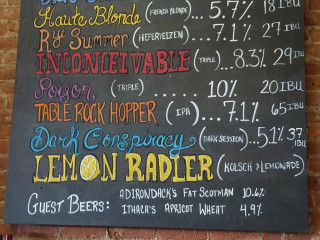 Haute Blonde (FRENCH BLONDE)... 5.7% 18 IBU
Ry Summer (HEFERYEIZEN)... 7.1% 27 IBU
INCONCEIVABLE (TRIPLE)...8.3% 29 IBU
Poison, (TRIPLE) ..... 10% 20 IBU
TABLE ROCK HOPPER (IPA)...7.1% 65 IBU
Dark Conspiracy (DARK SESSION)...5.1% 37 IBU
LEMON RADLER (KOLSCH & LEMONADE)
GUEST BEERS: ADIRONDACK'S FAT SCOTMAN 10.6%
ITHACA'S APRICOT WHEAT 4.9%